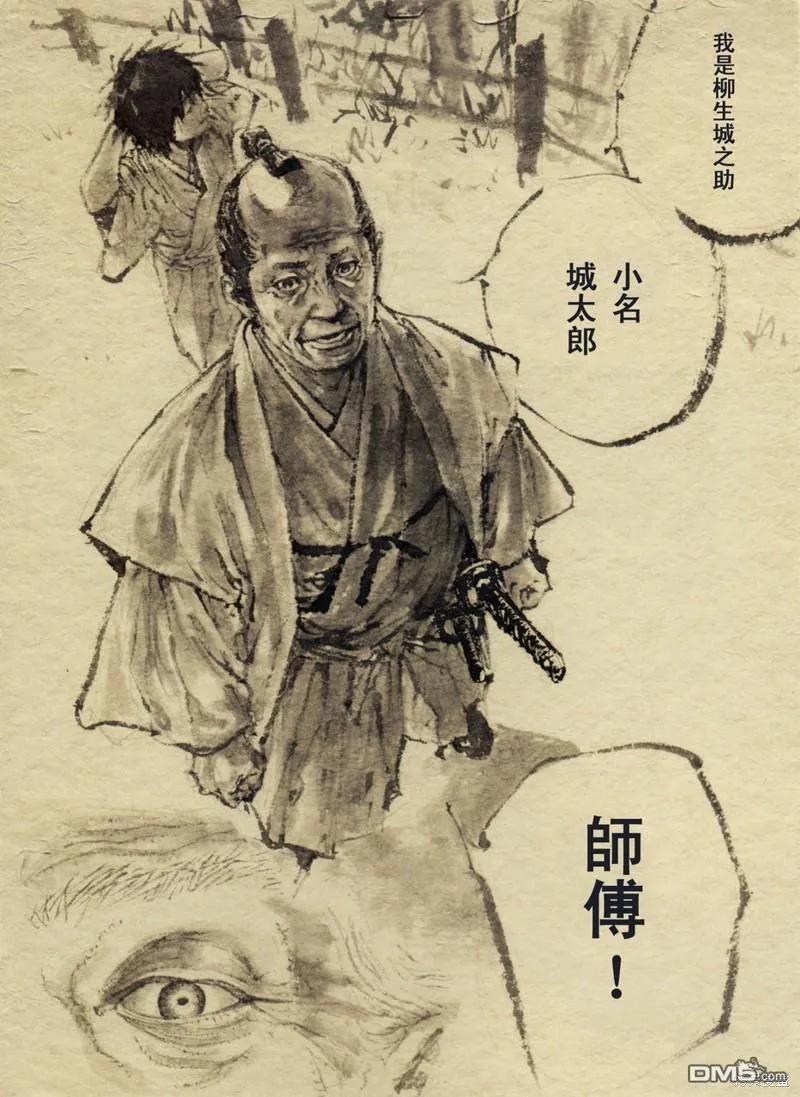 我是柳生城之助
小名
城太郎
師傅！
DM5.com